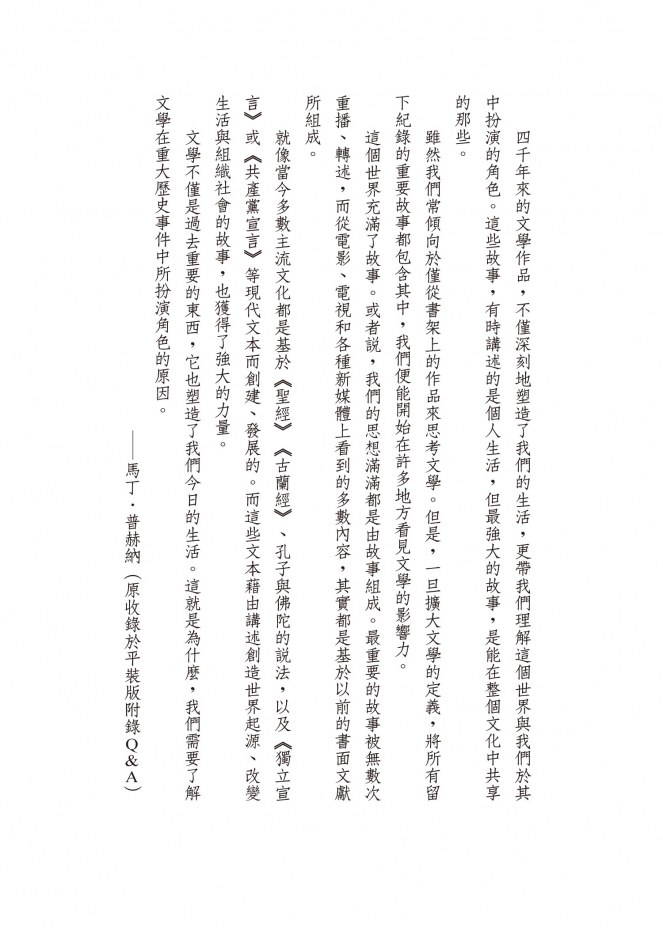 四千年來的文學作品，不僅深刻地塑造了我們的生活，更帶我們理解這個世界與我們於其
中扮演的角色。這些故事，有時講述的是個人生活，但最強大的故事，是能在整個文化中共享
的那些。
雖然我們常傾向於僅從書架上的作品來思考文學。但是，一旦擴大文學的定義，將所有留
下紀錄的重要故事都包含其中，我們便能開始在許多地方看見文學的影響力。
這個世界充滿了故事。或者說，我們的思想滿滿都是由故事組成。最重要的故事被無數次
重播、轉述，而從電影、電視和各種新媒體上看到的多數內容，其實都是基於以前的書面文獻
所組成。
就像當今多數主流文化都是基於《聖經》《古蘭經》、孔子與佛陀的說法，以及《獨立宣
言》或《共產黨宣言》等現代文本而創建、發展的。而這些文本藉由講述創造世界起源、改變
生活與組織社會的故事，也獲得了強大的力量。
文學不僅是過去重要的東西，它也塑造了我們今日的生活。這就是為什麼，我們需要了解
文學在重大歷史事件中所扮演角色的原因。
——馬丁・普赫納（原收錄於平裝版附錄Q&A）